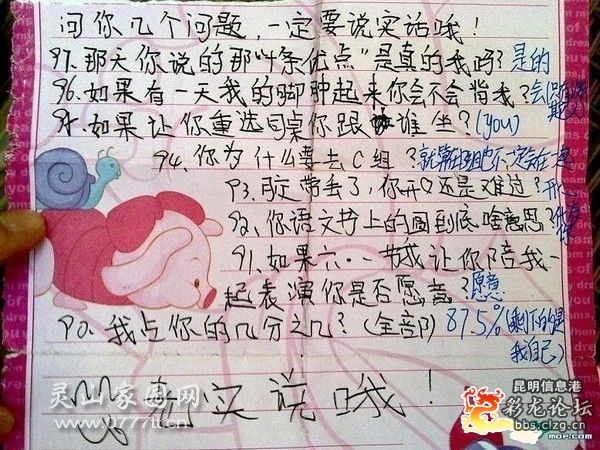 问你几个问题，一定要说实话哦！
97.那天你说的那"4条优点"是真的我吗？是的
96.如果有一天我的脚肿起来你会不会背我？会
95.如果让你重选同桌你跟谁坐？(you)
94.你为什么要去C组？
93.胶带丢了，你开心还是难过？开心
92.你语文书上的圈到底啥意思？
91.如果六·一节成让你陪我一
起表演你是否愿意？愿意
90.我占你的几分之几？(全部) 87.5%(剩下的是
我自己)
实说哦！
灵山家园网
www.0777tt.cn
昆明信息港
彩龙论坛
bbs.clzg.cn
MOP.COM